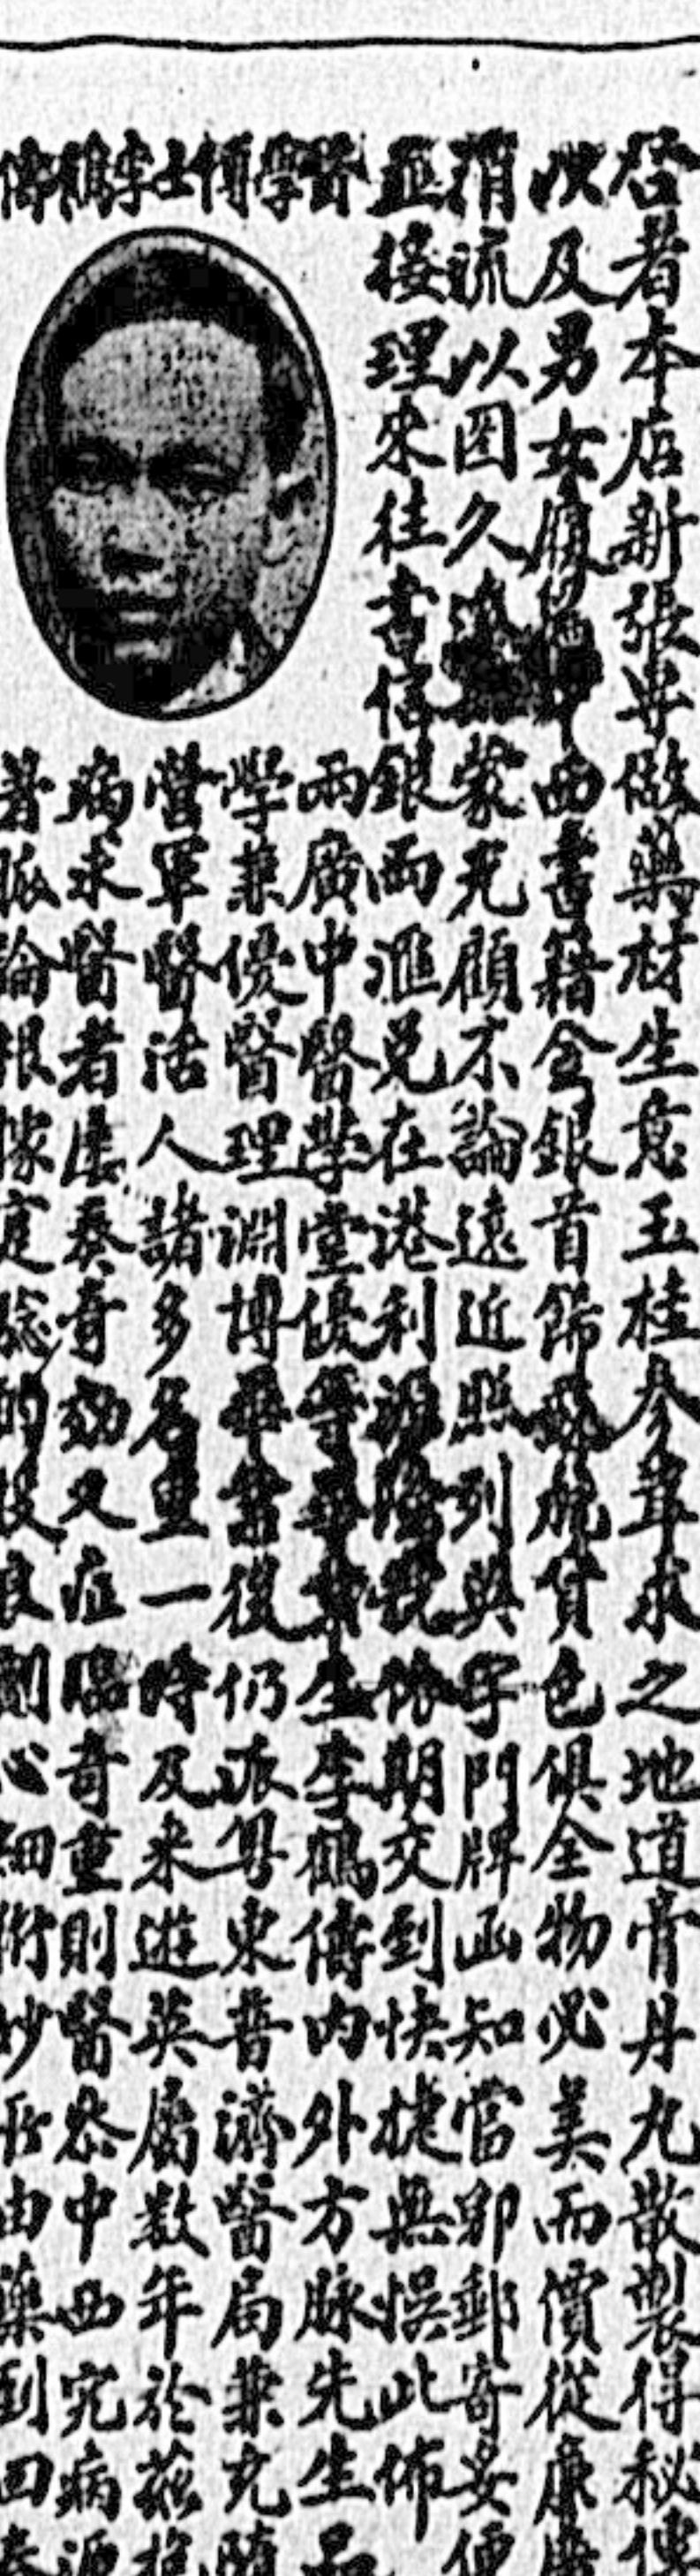 啓者本店新張專做藥材生意玉桂參茸求之地道膏丹丸散製得秘傳
以及男女西書籍金銀首飾蘇杭貨色俱全物必美而價從廉
涓流以图久蒙光顧不論遠近照列與字門牌函知當即郵寄妥便
並接理來往書信銀両滙兌在港利源隆號依期交到快捷無悞此佈
醫學博士李鶴儔
両廣中醫學堂優等畢業生李鶴儔內外方脉先生品
學兼優醫理淵博畢業後仍派粤東普濟醫局兼充隨
營軍醫活人諸多名重一時及來遊英屬数年於茲
病求醫者屡奏奇効又症臨奇重則醫叅中西究病源
著脈論根據定良劑心細術妙藥到回春